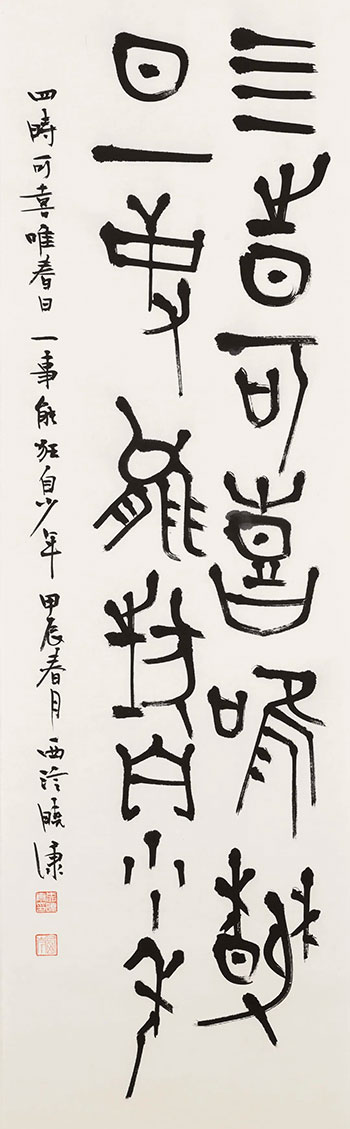 亖時可喜唯春
日一事能狂自少年
四時可喜唯春日 一事能狂自少年 甲辰春月 西泠